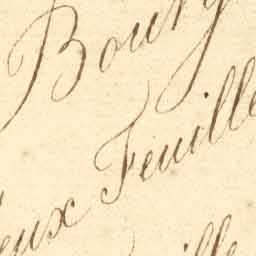 Bourg
eux Feuille
ille